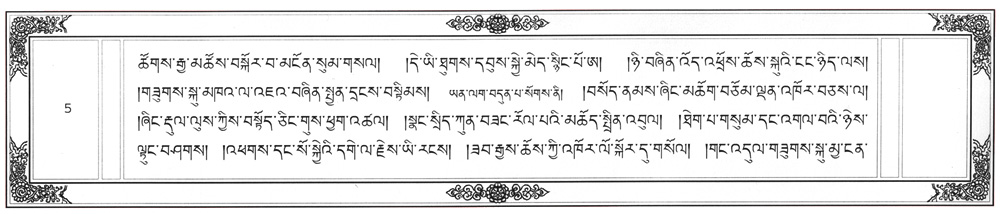 ཚོགས་རྒྱ་མཚོས་བསྐོར་བ་མངོན་སུམ་གསལ། །དེ་ཡི་ཐུགས་དབུས་སྐྱེ་མེད་སྙིང་པོ་ཨ། །ཉི་བཞིན་འོད་འཕྲོས་ཆོས་སྐུའི་ངང་ཉིད་ལས།
།གཟུགས་སྐུ་མཁའ་ལ་འཇའ་བཞིན་སྤྱན་དྲངས་བསྟིམས། ཡན་ལག་བདུན་པ་སོགས་ནི། །བསོད་ནམས་ཞིང་མཆོག་བཅོམ་ལྡན་འཁོར་བཅས་ལ།
5
།ཞིང་རྡུལ་ལུས་ཀྱིས་བསྟོད་ཅིང་གུས་ཕྱག་འཚལ། །སྣང་སྲིད་ཀུན་བཟང་རོལ་པའི་མཆོད་སྤྲིན་འབུལ། །ཐེག་པ་གསུམ་དང་འགལ་བའི་ཉེས་
ལྟུང་བཤགས། །འཕགས་དང་སོ་སྐྱེའི་དགེ་ལ་རྗེས་ཡི་རངས། །ཟབ་རྒྱས་ཆོས་ཀྱི་འཁོར་ལོ་སྐོར་དུ་གསོལ། །གང་འདུལ་གཟུགས་སྐུ་མྱ་ངན་